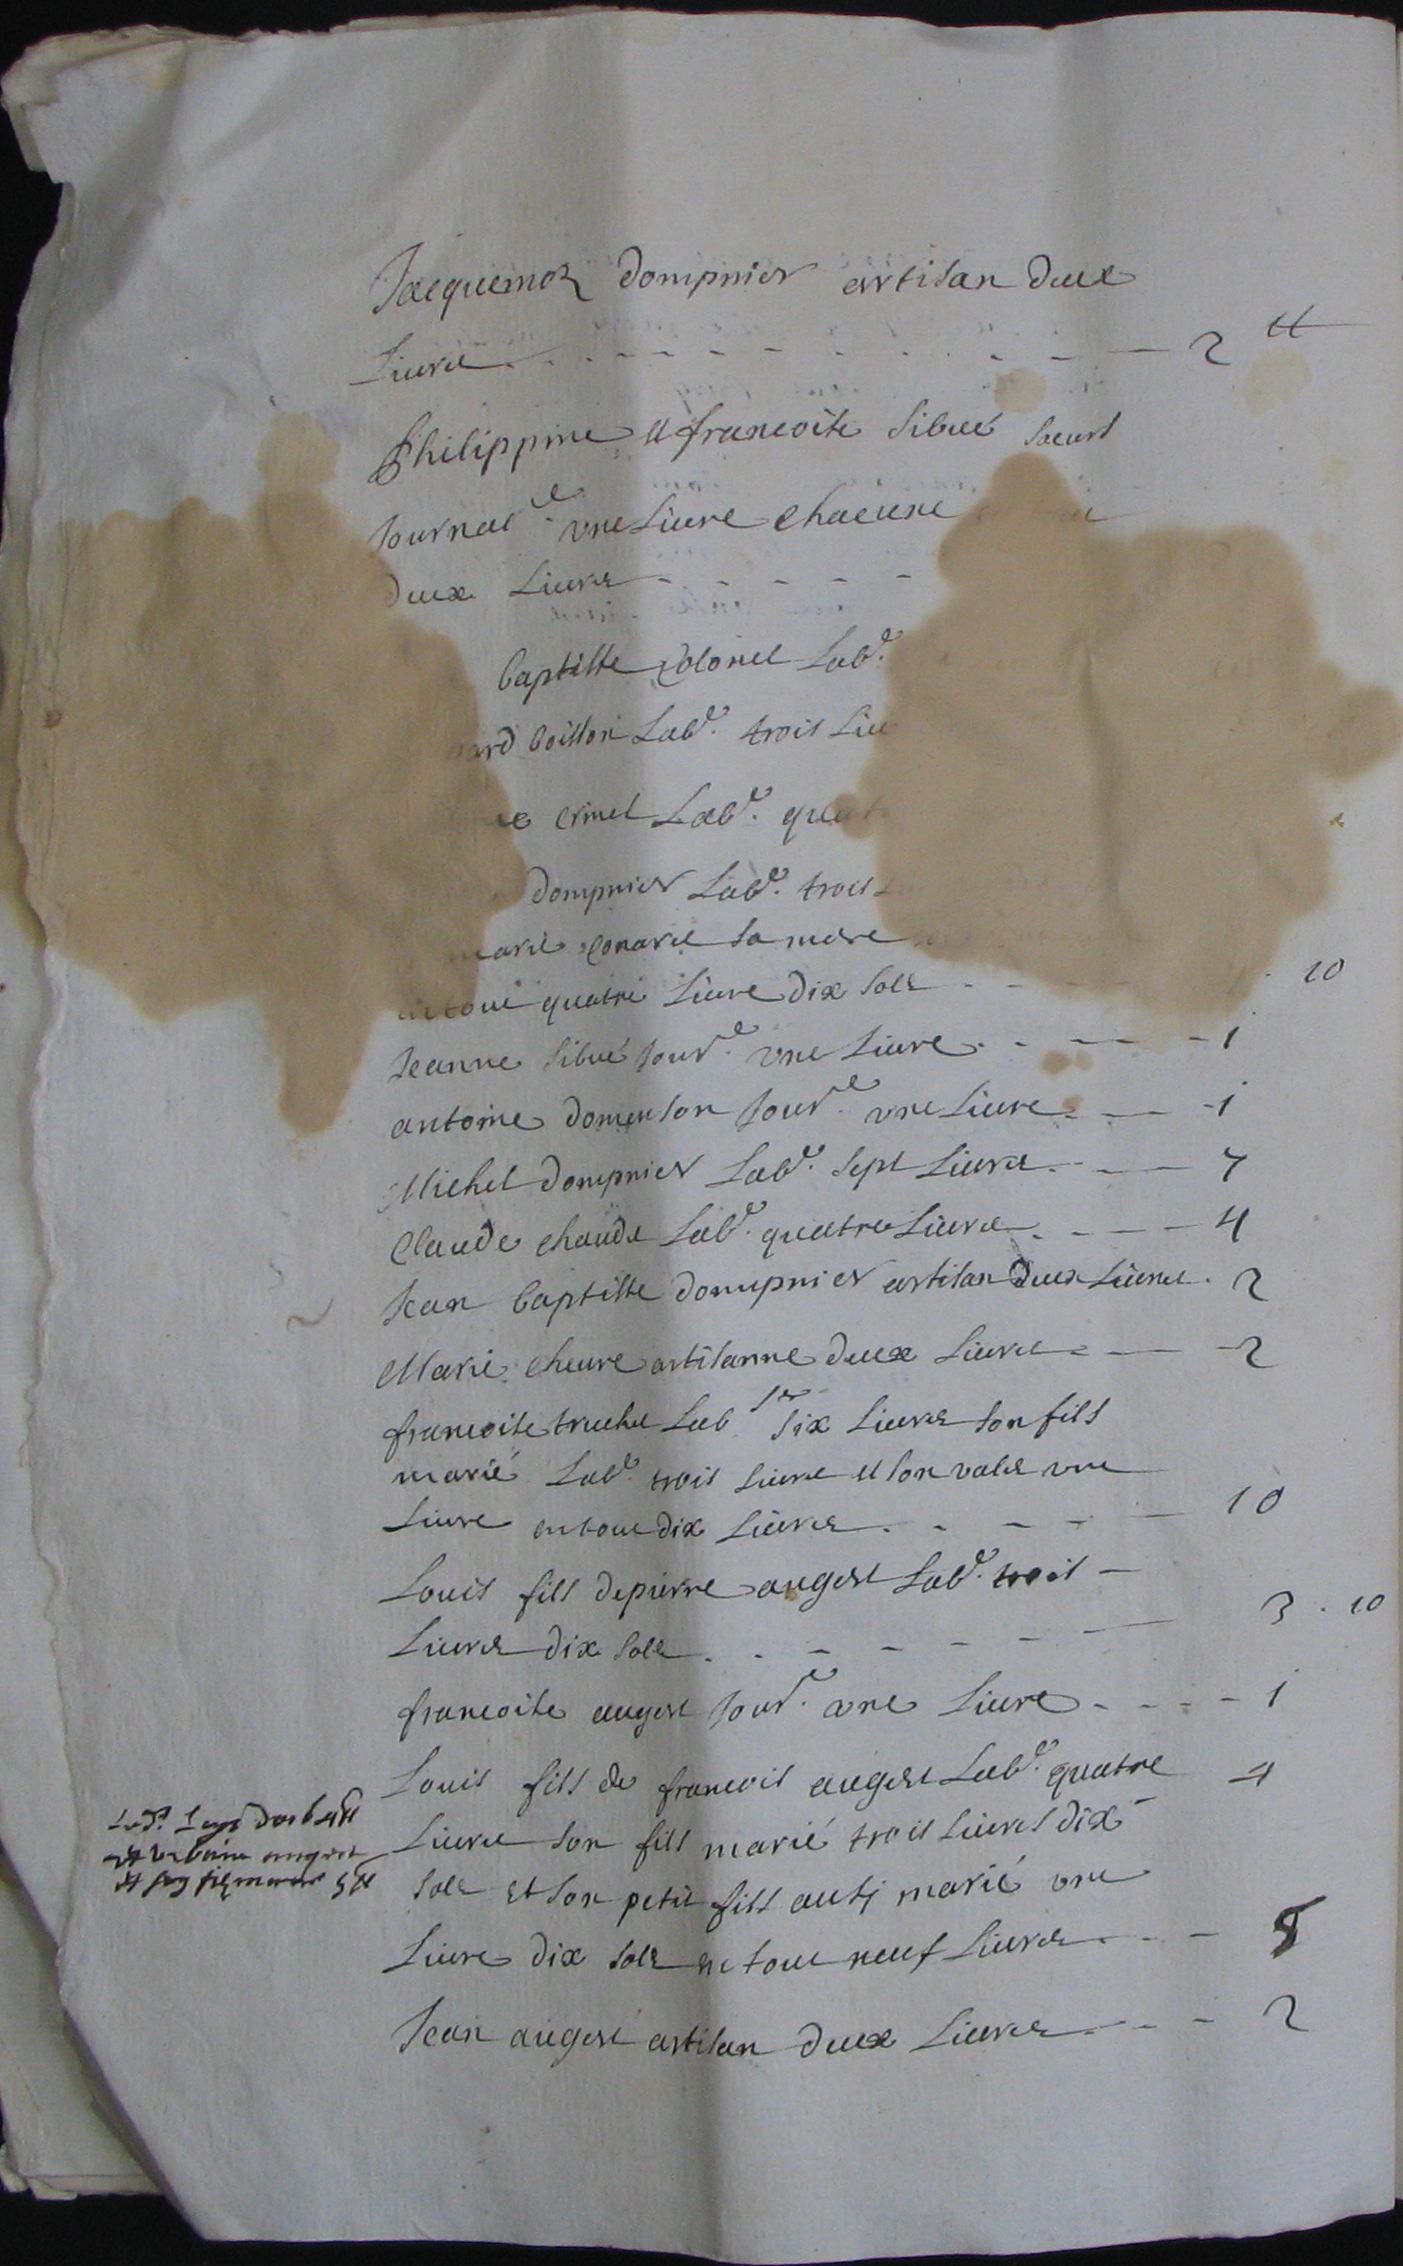 Jacquemoz dompnier artisan deux
Livres 2 ₶
Philippine et francoise sibué soeurs
Journal.e une Livre chacune
deux Livres
baptiste colonel Lab.r
ard boisson Lab.r trois Liv
crinel Lab.r quat
dompnier Lab.r trois
marie sa mere
en tout quatre Livre dix sols 10
Jeanne sibué Jour.e une Livre 1
antoine domenson Jour.e une Livre 1
Michel dompnier Lab.r sept Livres 7
Claude chaude Lab.r quatre Livres 4
Jean baptiste dompnier artisan deux Livres 2
Marie cheure artisanne deux Livres 2
francoise truche Lab six Livres son fils
marié Lab.r trois Livres et son valet une
Livre en tout dix Livres 10
Louis fils de pierre augert Lab.r trois
Livres dix sols 3 . 10
francoise augert Jour.e une Livre 1
Louis fils de francois augert Lab.r quatre 4
Livres son fils marié trois Livres dix
sols et son petit fils aussi marié une
Livre dix sols en tout neuf Livres
Jean augert artisan deux Livres 2